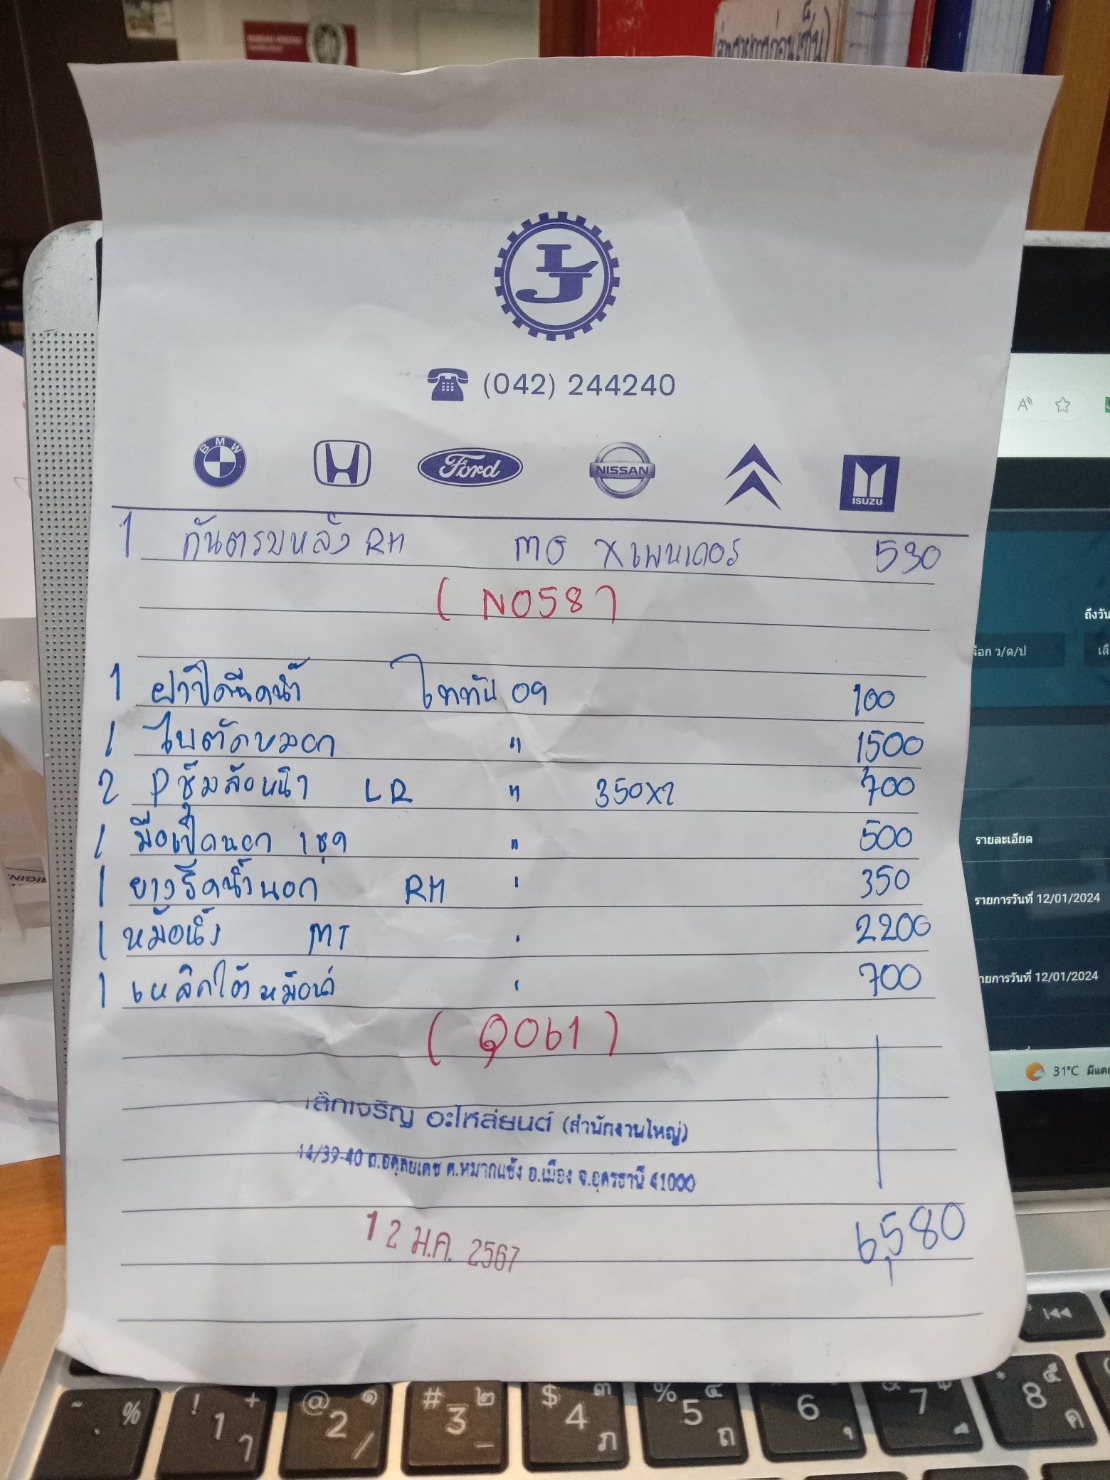 (042) 244240
BMW
Ford
NISSAN
ISUZU
1 กันตรบหลัง RH MG Xเพนเดอร์ 530
( N058 )
1 ฝาปิดฉีดน้ำ ไททัน 09 100
1 ไบตัดหมอก " 1500
2 P ซุ้มล้อหน้า LR " 350x2 700
1 มือเปิดนอก 1 ชุด " 500
1 ยางรีดน้ำนอก RH " 350
1 หม้อน้ำ MT " 2200
1 เหล็กใต้หม้อน้ำ " 700
( Q061 )
เล็กเจริญ อะไหล่ยนต์ (สำนักงานใหญ่)
14/39-40 ถ.อดุลยเดช ต.หมากแข้ง อ.เมือง จ.อุดรธานี 41000
12 ม.ค. 2567
6,580
ถึงวัน
ลือก ว/ด/ป
เลื
รายละเอียด
รายการวันที่ 12/01/2024
ายการวันที่ 12/01/2024
31°C มีแดด